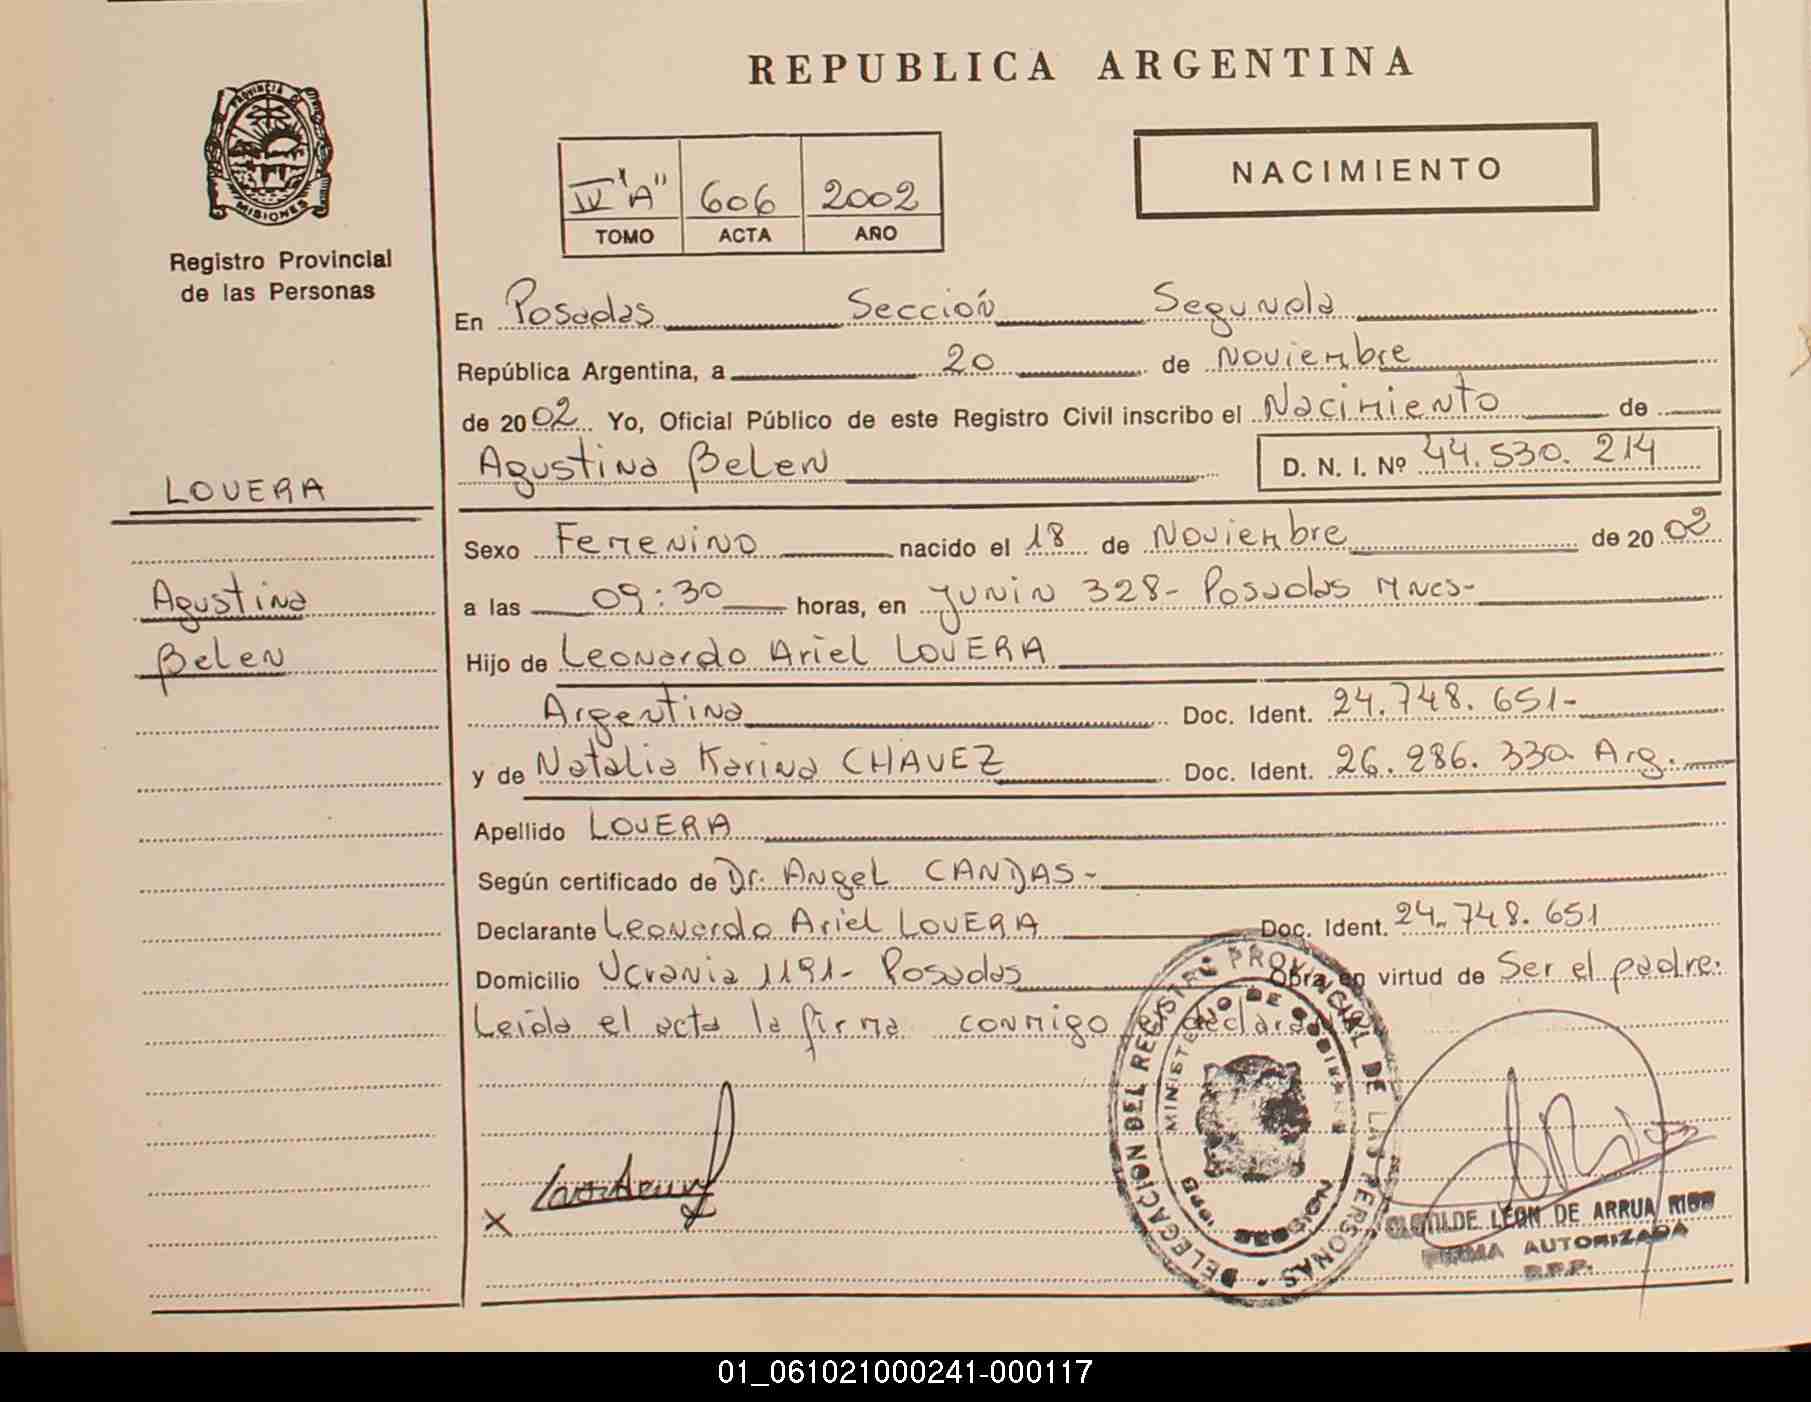 REPUBLICA ARGENTINA
PROVINCIA DE
MISIONES
Registro Provincial
de las Personas
IV "A" 606 2002
TOMO ACTA AÑO
NACIMIENTO
En Posadas Sección Segunda
República Argentina, a 20 de Noviembre
de 2002 Yo, Oficial Público de este Registro Civil inscribo el Nacimiento de
Agustina Belen D. N. I. Nº 44.530.214
LOVERA
Sexo Femenino nacido el 18 de Noviembre de 2002
Agustina
a las 09:30 horas, en Junin 328- Posadas Mnes-
Belen
Hijo de Leonardo Ariel LOVERA
Argentina Doc. Ident. 24.748.651-
y de Natalia Karina CHAVEZ Doc. Ident. 26.286.330. Arg.
Apellido LOVERA
Según certificado de Dr. Angel CANDAS-
Declarante Leonardo Ariel LOVERA Doc. Ident. 24.748.651
Domicilio Ucrania 1191- Posadas Obra en virtud de Ser el padre.
Leida el acta la firma conmigo el declarante
DELEGACION DEL REGISTRO PROVINCIAL DE LAS PERSONAS
MINISTERIO DE GOBIERNO
MISIONES
X
CLOTILDE LEON DE ARRUA RIOS
FIRMA AUTORIZADA
R.P.P.
01_061021000241-000117